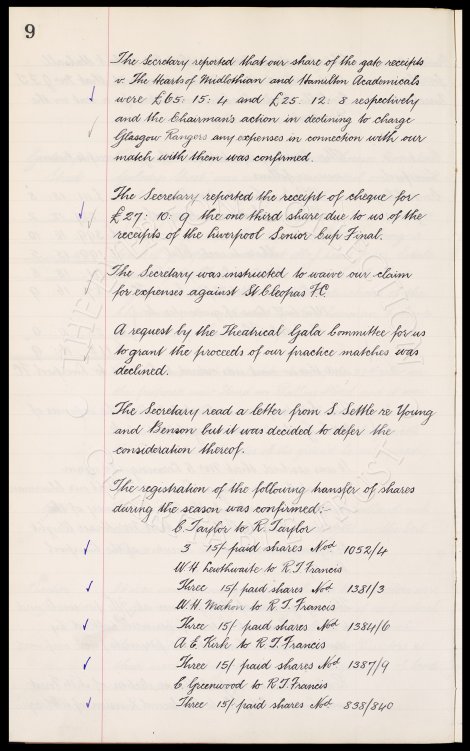 9
The Secretary reported that our share of the gate receipts
v. The Hearts of Midlothian and Hamilton Academicals
were £65: 15: 4 and £25: 12: 8 respectively
and the Chairman's action in declining to charge
Glasgow Rangers any expenses in connection with our
match with them was confirmed.
The Secretary reported the receipt of cheque for
£27: 10: 9 the one third share due to us of the
receipts of the Liverpool Senior Cup Final.
The Secretary was instructed to waive our claim
for expenses against St Cleopas F.C.
A request by the Theatrical Gala Committee for us
to grant the proceeds of our practice matches was
declined.
The Secretary read a letter from S. Settle re Young
and Benson but it was decided to defer the
consideration thereof.
The registration of the following transfer of shares
during the season was confirmed:-
C. Taylor to R. Taylor
3 15/- paid shares Nod 1052/4
W. H. Leuthwaite to R. T. Francis
Three 15/- paid shares Nod 1381/3
W. H. Mahon to R. T. Francis
Three 15/- paid shares Nod 1384/6
A. E. Kirk to R. T. Francis
Three 15/- paid shares Nod 1387/9
C. Greenwood to R. T. Francis
Three 15/- paid shares Nod 838/840